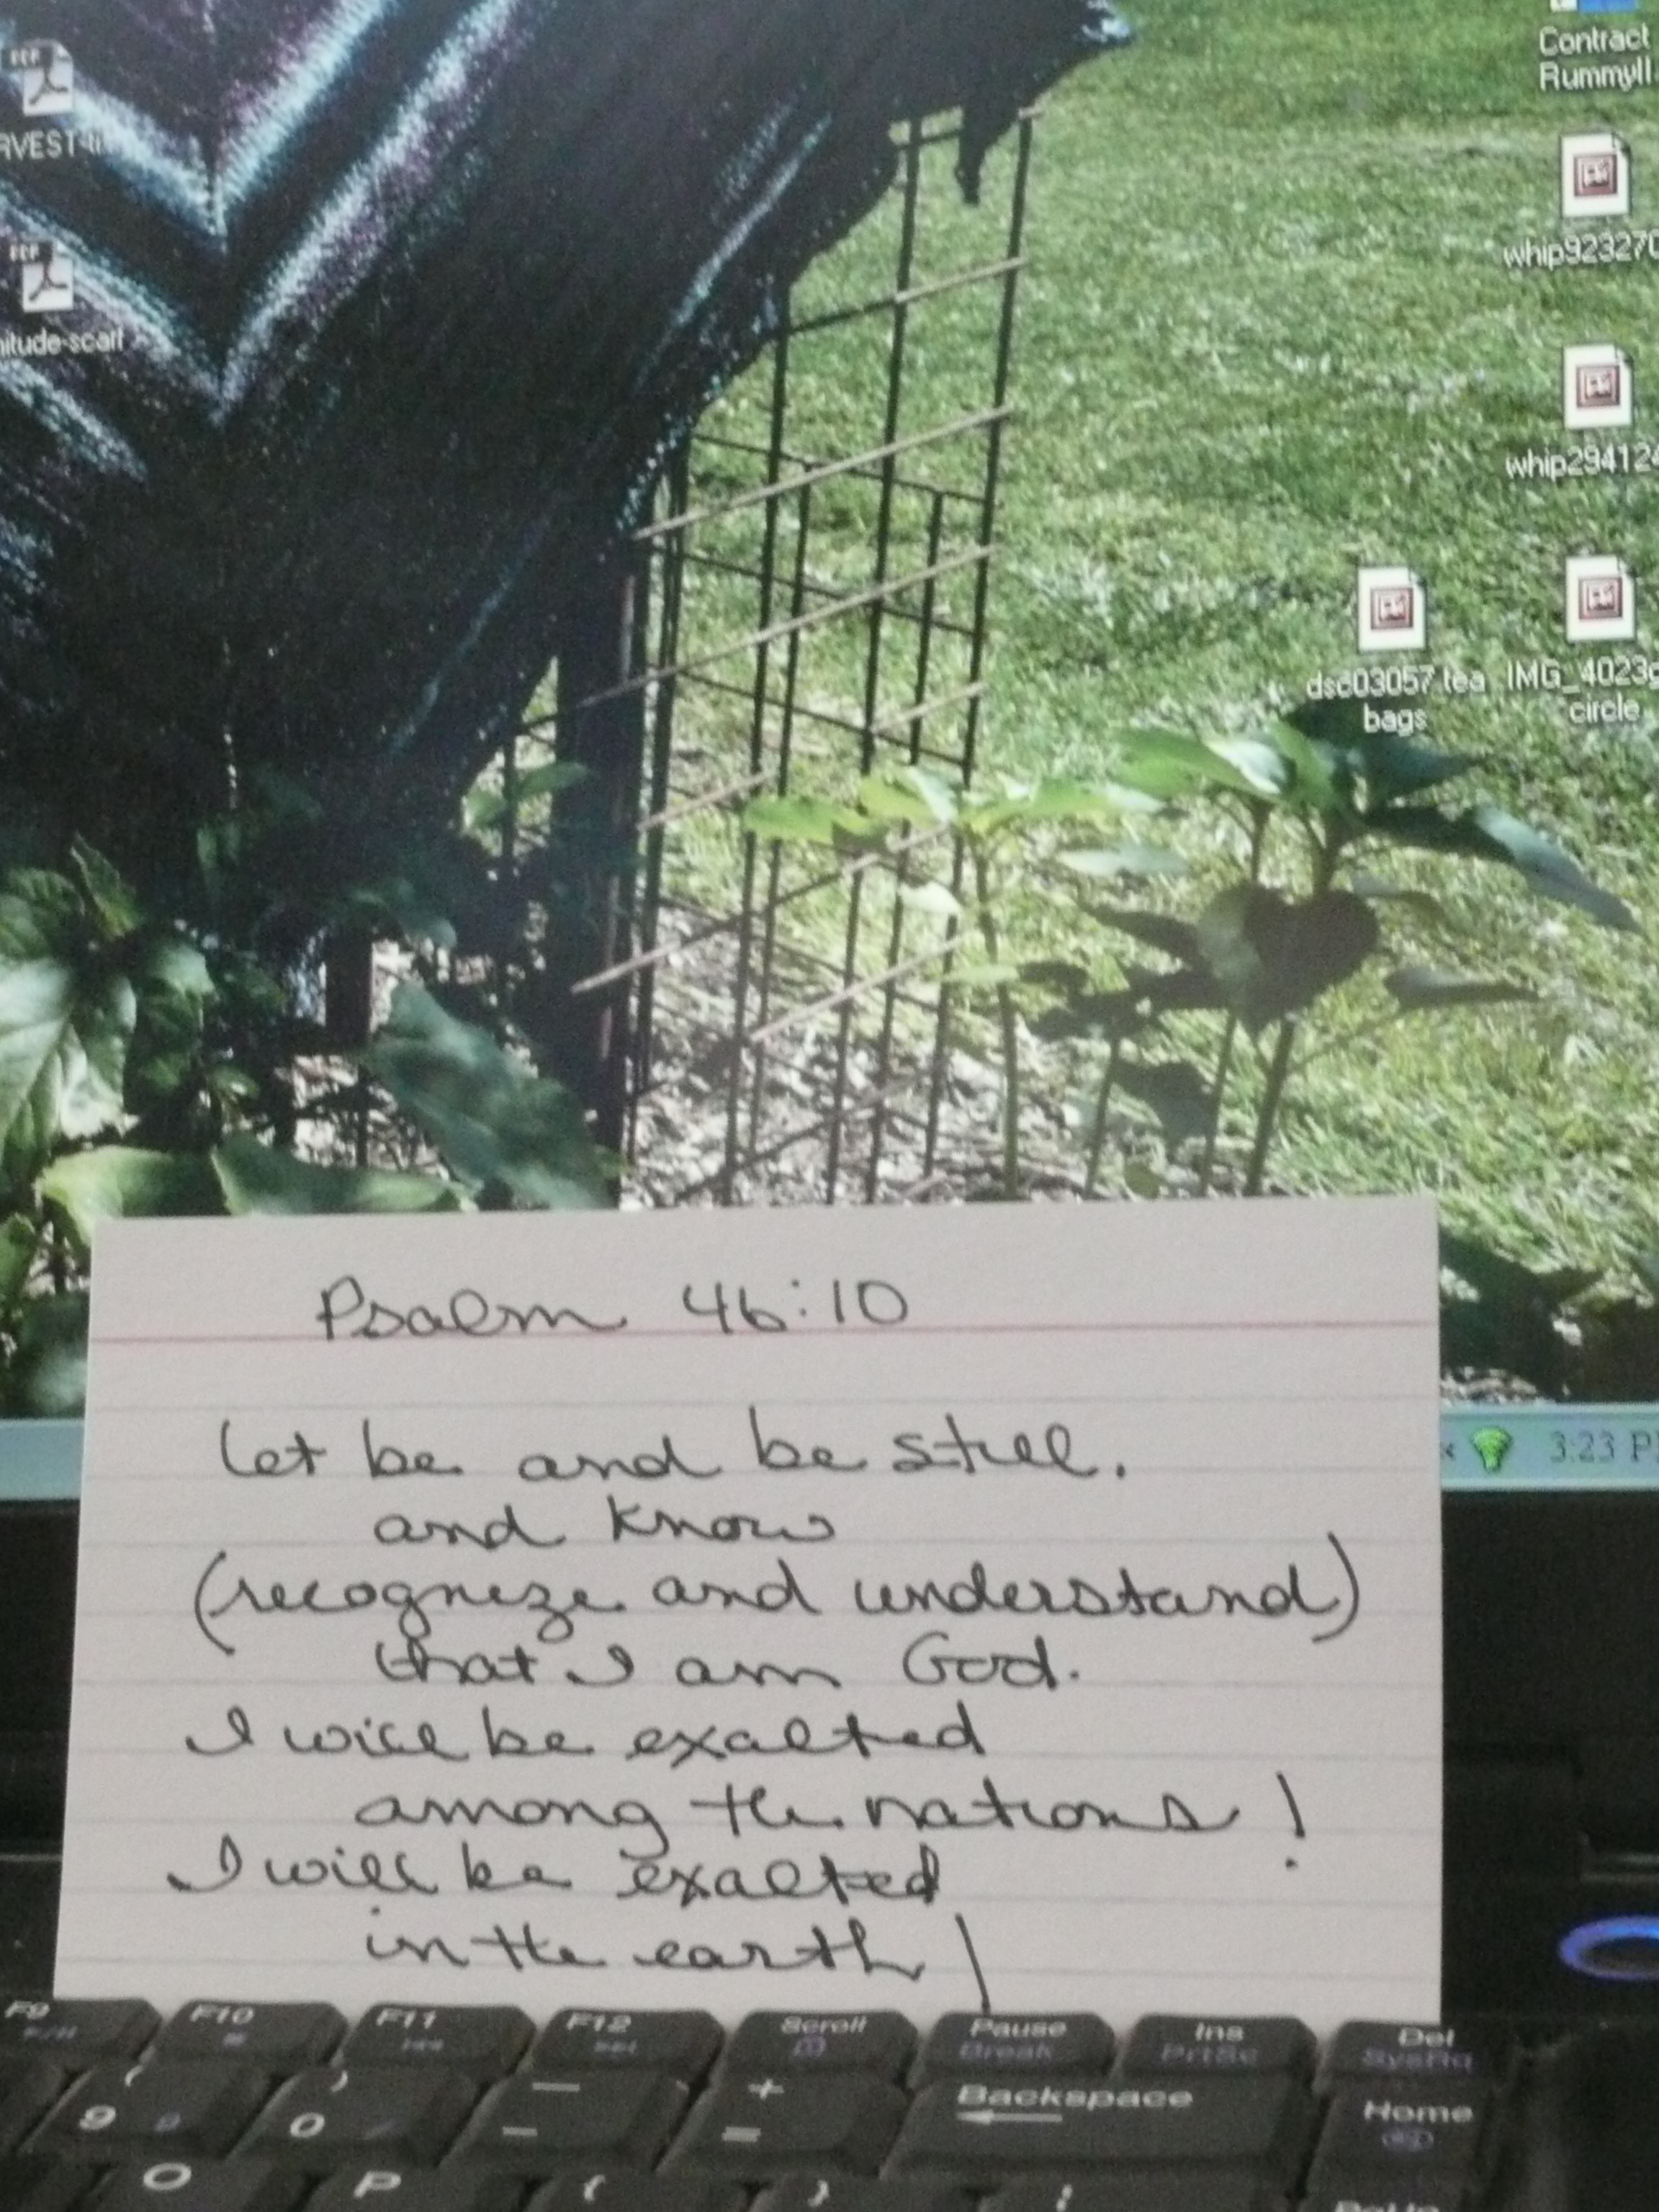 Contract
RummyII
RVEST-
itude-scarf
whip923270
whip294124
dsc03057.tea
bags
IMG_4023
circle
Psalm 46:10
Let be and be still.
and know
(recognize and understand)
that I am God.
I will be exalted
among the nations!
I will be exalted
in the earth!
3:23 P
F9
F10
F11
F12
Scroll
Pause
Break
Ins
PrtSc
Del
SysRq
( 9
) 0
— -
+ =
Backspace
Home
O
P
{
}
PgUp